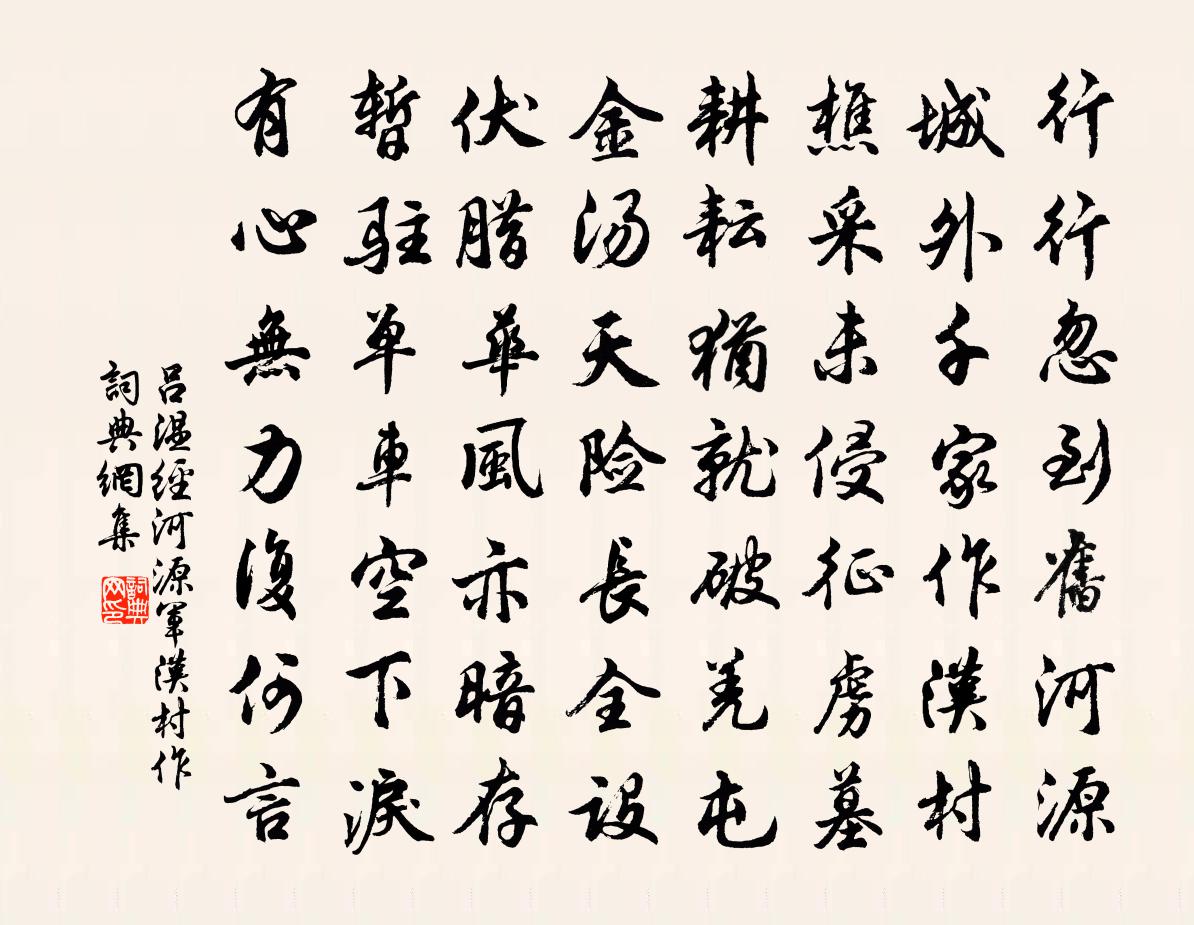 行行忽到舊河源
城外千家作漢村
樵采未侵征虜墓
耕耘猶就破羌屯
金汤天险長全設
伏腊華風亦暗存
暫駐单車空下淚
有心無力復何言
吕温經河源軍漢村作
詞典網集
詞典网印